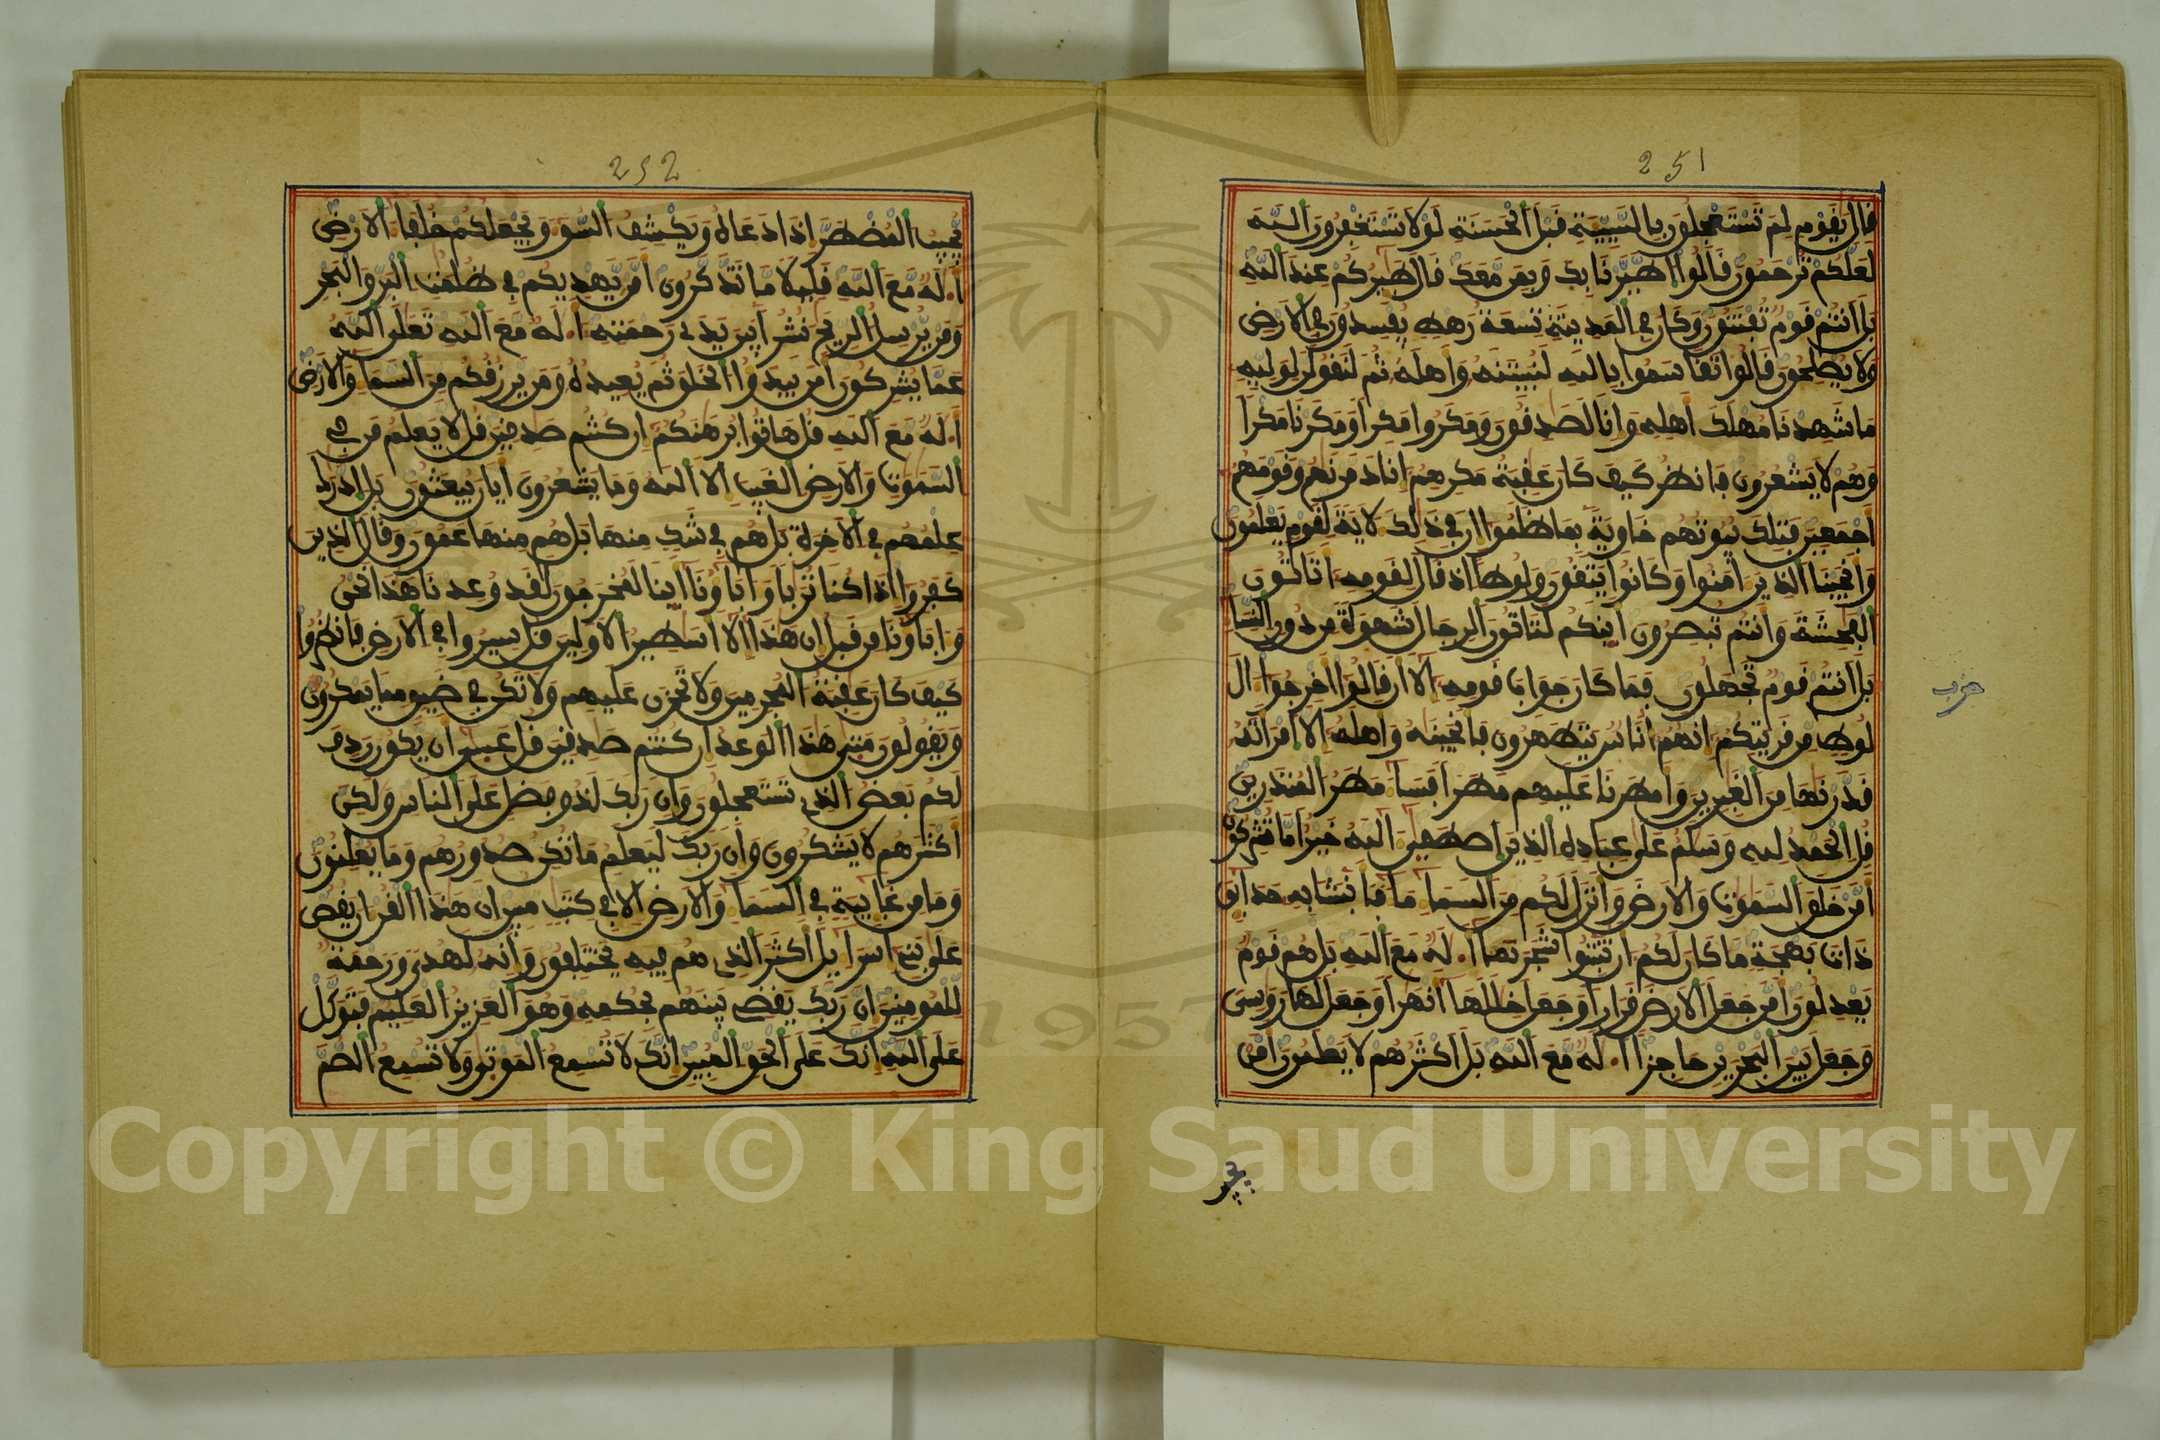 251
قال يقوم لم تستعجلون بالسيية قبل الحسنة لولا تستغفرون الله
لعلكم ترحمون قالوا اطيرنا بك وبمن معك قال طيركم عند الله
بل انتم قوم تفتنون وكان في المدينة تسعة رهط يفسدون في الارض
ولا يصلحون قالوا تقاسموا بالله لنبيتنه واهله ثم لنقولن لوليه
ما شهدنا مهلك اهله وانا لصدقون ومكروا مكرا ومكرنا مكرا
وهم لا يشعرون فانظر كيف كان عقبة مكرهم انا دمرنهم وقومهم
اجمعين فتلك بيوتهم خاوية بما ظلموا ان في ذلك لاية لقوم يعلمون
وانجينا الذين امنوا وكانوا يتقون ولوطا اذ قال لقومه اتاتون
الفحشة وانتم تبصرون اينكم لتاتون الرجال شهوة من دون النسا
بل انتم قوم تجهلون فما كان جواب قومه الا ان قالوا اخرجوا ال
لوط من قريتكم انهم اناس يتطهرون فانجينه واهله الا امراته
قدرنها من الغبرين وامطرنا عليهم مطرا فسا مطر المنذرين
قل الحمد لله وسلم على عباده الذين اصطفى الله خير اما تشركون
امن خلق السموت والارض وانزل لكم من السما ما فانبتنا به حدايق
ذات بهجة ما كان لكم ان تنبتوا شجرها ا.له مع الله بل هم قوم
يعدلون امن جعل الارض قرارا وجعل خللها انهرا وجعل لها روسى
وجعل بين البحرين حاجزا ا.له مع الله بل اكثرهم لا يعلمون امن
يجيب
حزب
252
يجيب المضطر اذا دعاه ويكشف السو ويجعلكم خلفا الارض
ا.له مع الله قليلا ما تذكرون امن يهديكم في ظلمت البر والبحر
ومن يرسل الريح نشرا بين يدي رحمته ا.له مع الله تعلى الله
عما يشركون امن يبدوا الخلق ثم يعيده ومن يرزقكم من السما والارض
ا.له مع الله قل هاتوا برهنكم ان كنتم صدقين قل لا يعلم من في
السموت والارض الغيب الا الله وما يشعرون ايان يبعثون بل ادرك
علمهم في الاخرة بل هم في شك منها بل هم منها عمون وقال الذين
كفروا اذا كنا تربا واباونا اينا لمخرجون لقد وعدنا هذا نحن
واباونا من قبل ان هذا الا اسطير الاولين قل سيروا في الارض فانظروا
كيف كان عقبة المجرمين ولا تحزن عليهم ولا تكن في ضيق مما يمكرون
ويقولون متى هذا الوعد ان كنتم صدقين قل عسى ان يكون ردف
لكم بعض الذي تستعجلون وان ربك لذو فضل على الناس ولكن
اكثرهم لا يشكرون وان ربك ليعلم ما تكن صدورهم وما يعلنون
وما من غايبة في السما والارض الا في كتب مبين ان هذا القران يقص
على بني اسرايل اكثر الذي هم فيه يختلفون وانه لهدى ورحمة
للمومنين ان ربك يقضي بينهم بحكمه وهو العزيز العليم فتوكل
على الله انك على الحق المبين انك لا تسمع الموتى ولا تسمع الصم
1957
Copyright © King Saud University